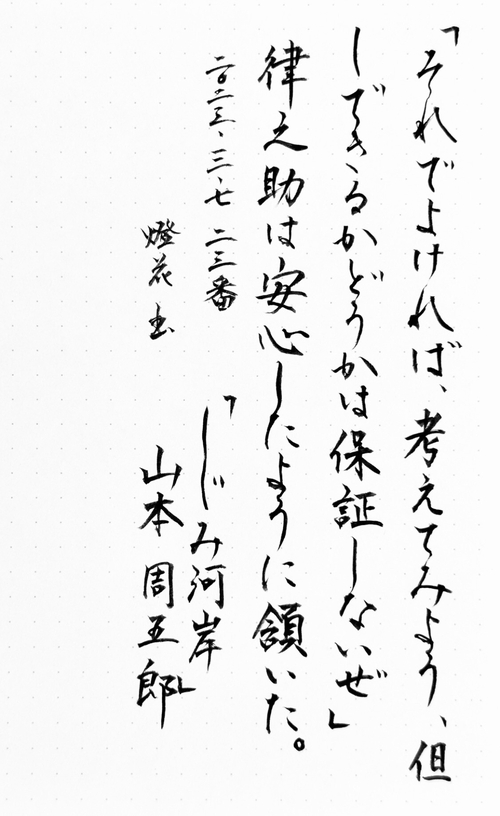 「それでよければ、考えてみよう、但
しできるかどうかは保証しないぜ」
律之助は安心したように頷いた。
二〇二三、三、七 二三番
「しじみ河岸
山本周五郎」
燈花